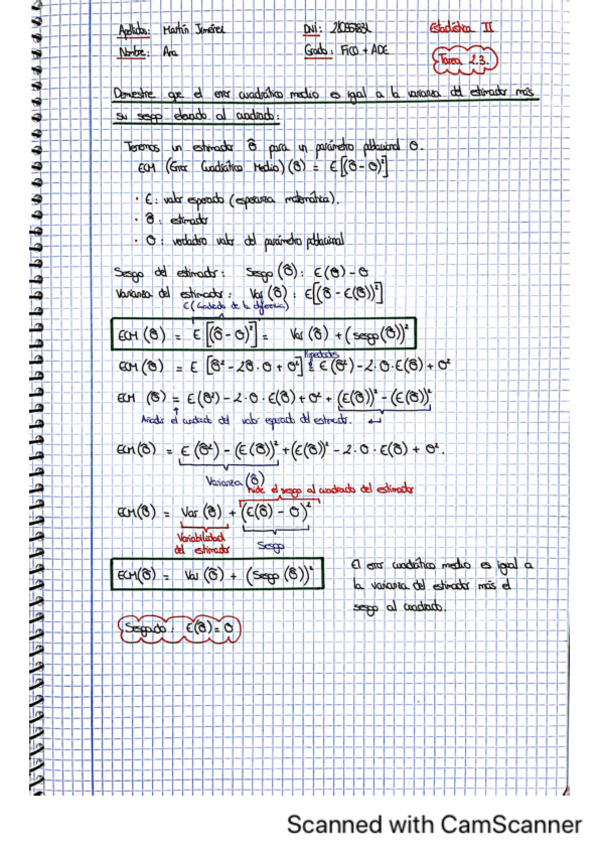 Apellidos: Martín Jiménez DNI: Estadística II
Nombre: Ana Grado: FICO + ADE Tarea 2.3.
Demostrar que el error cuadrático medio es igal a la varianza del estimador más
su sesgo elevado al cuadrado:
Tenemos un estimador θ̂ para un parámetro poblacional θ.
ECM (Error Cuadrático Medio)(θ̂) = E[(θ̂ - θ)²]
· E: valor esperado (esperanza matemática).
· θ̂: estimador
· θ: verdadero valor del parámetro poblacional
Sesgo del estimador: Sesgo (θ̂): E(θ̂) - θ
Varianza del estimador: Var (θ̂): E[(θ̂ - E(θ̂))²]
E (cuadrado de la diferencia)
ECM (θ̂) = E[(θ̂ - θ)²] = Var (θ̂) + (sesgo(θ̂))²
Propiedades
ECM (θ̂) = E [θ̂² - 2θ̂·θ + θ²] = E(θ̂²) - 2·θ·E(θ̂) + θ²
ECM (θ̂) = E(θ̂²) - 2·θ·E(θ̂) + θ² + (E(θ̂))² - (E(θ̂))²
Añadir el cuadrado del valor esperado del estimador.
ECM(θ̂) = E(θ̂²) - (E(θ̂))² + (E(θ̂))² - 2·θ·E(θ̂) + θ².
Varianza (θ̂)
mide el sesgo al cuadrado del estimador
ECM(θ̂) = Var (θ̂) + (E(θ̂) - θ)²
Variabilidad
del estimador
Sesgo
ECM(θ̂) = Var (θ̂) + (Sesgo (θ̂))²
El error cuadrático medio es igual a
la varianza del estimador más el
sesgo al cuadrado.
Sesgado: E(θ̂) = θ
Scanned with CamScanner